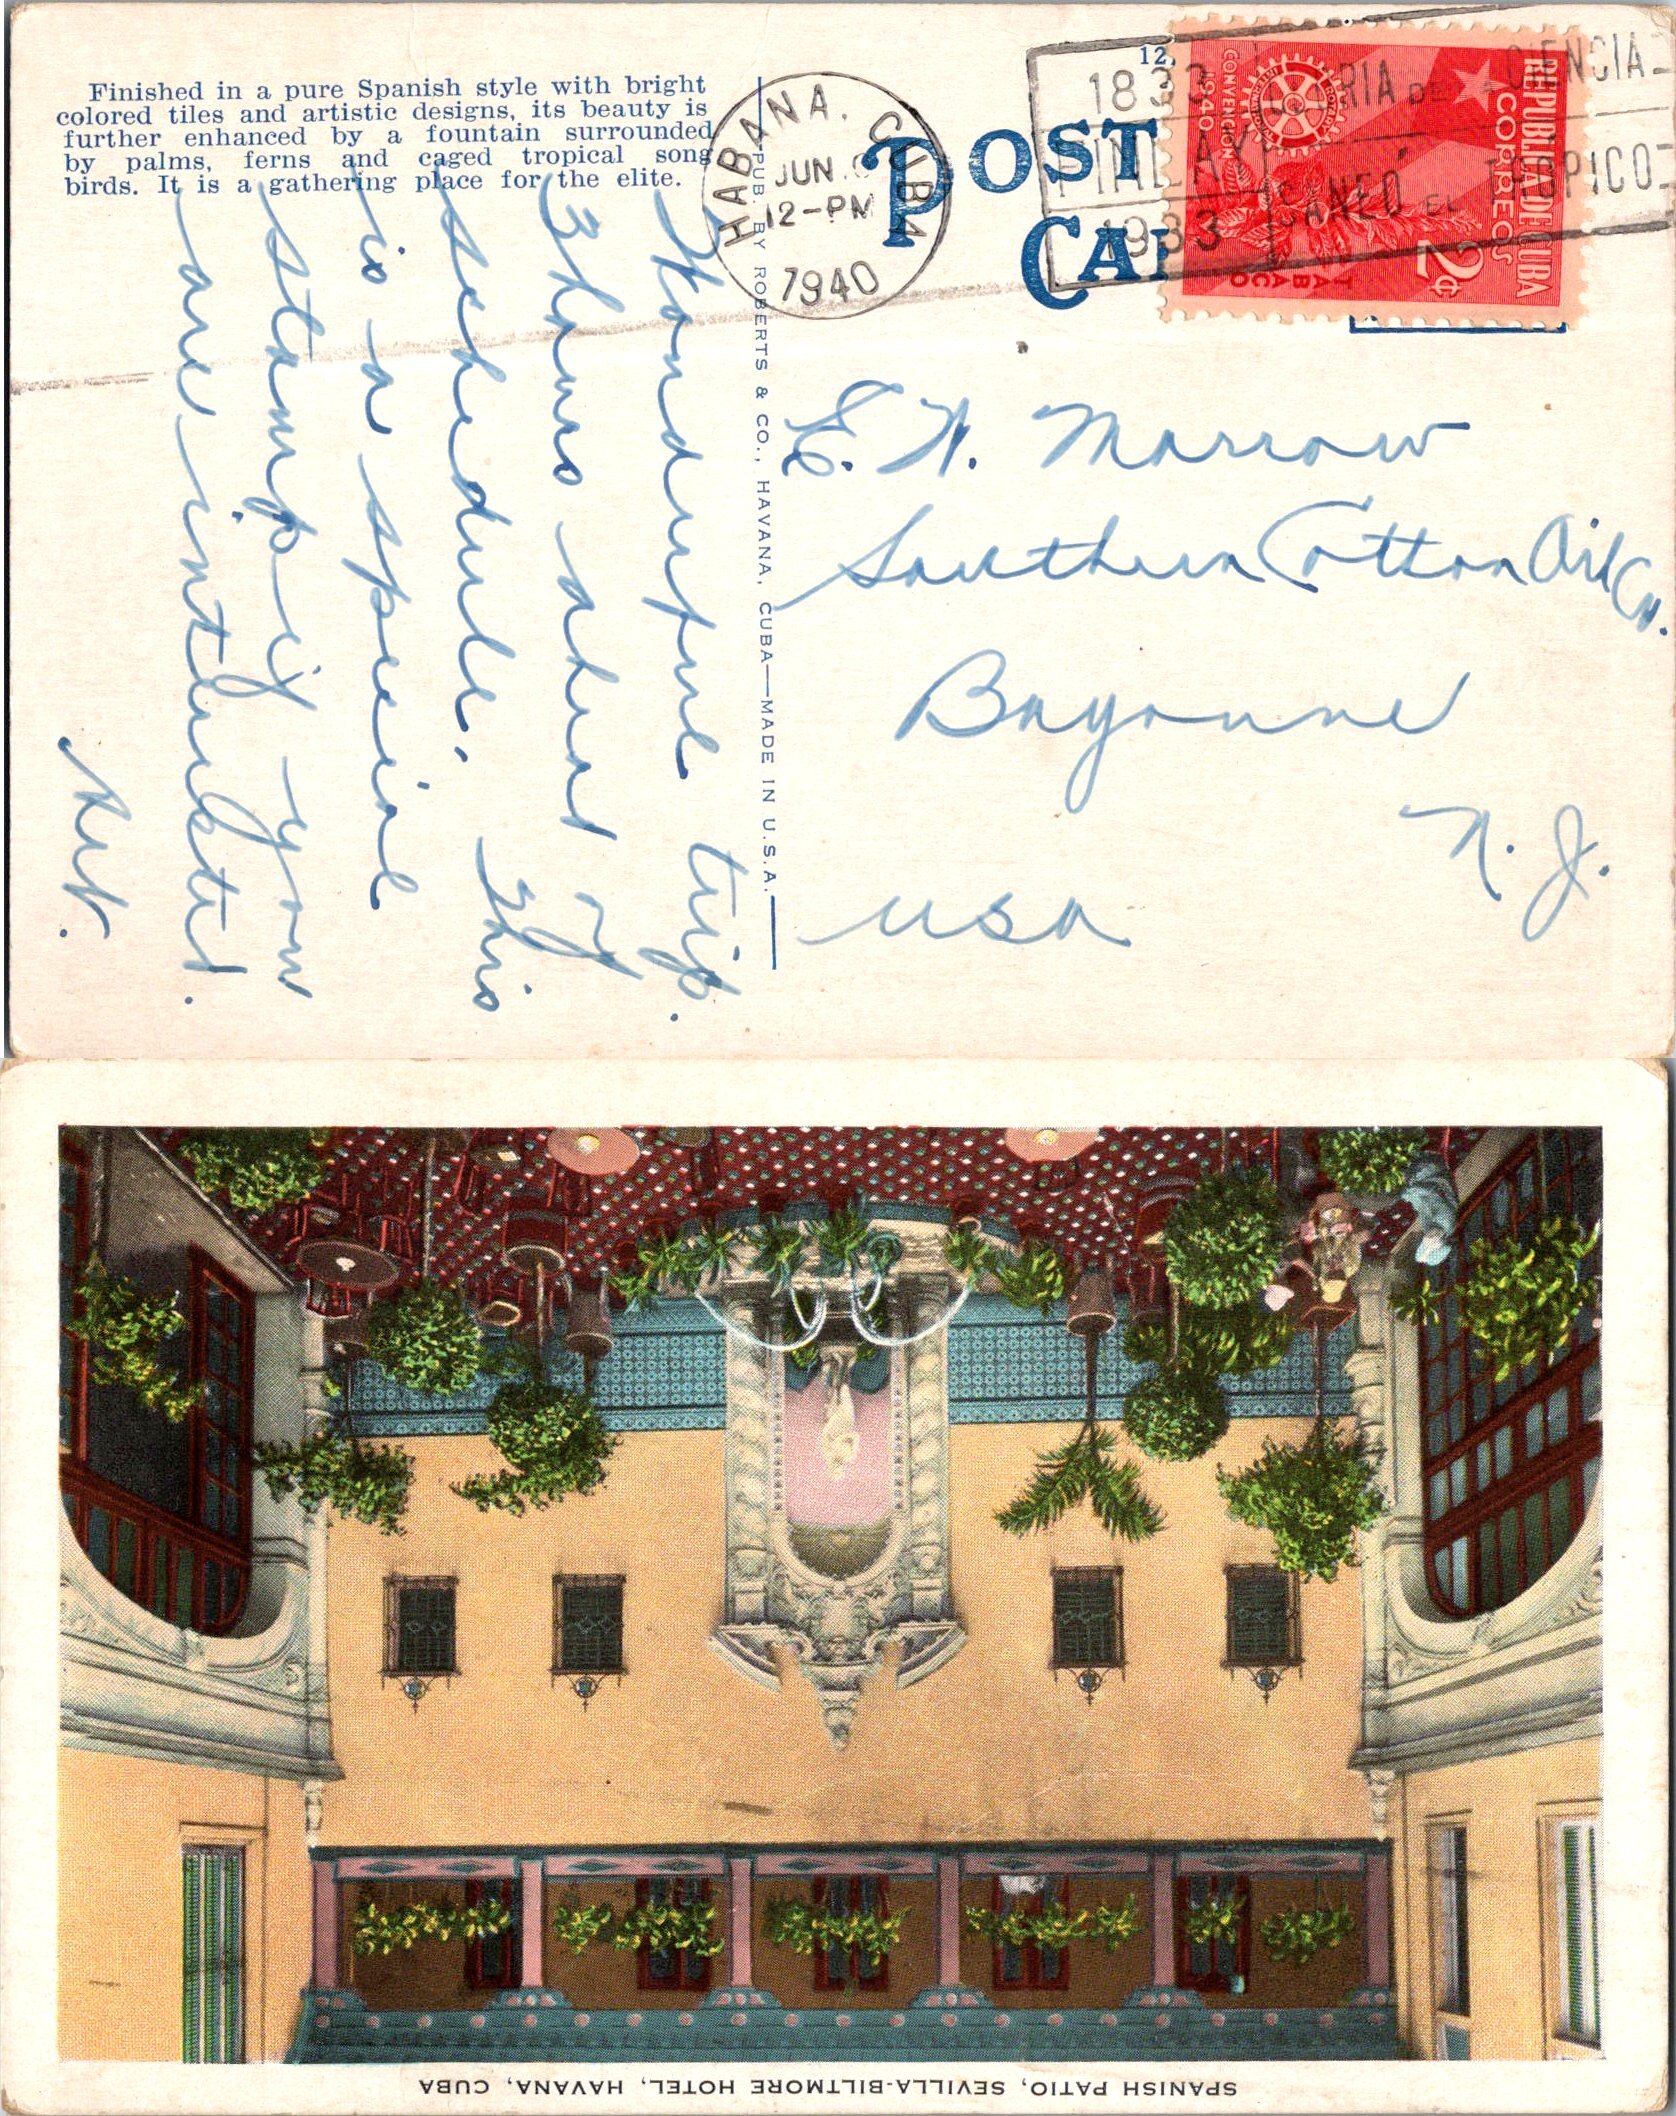 Finished in a pure Spanish style with bright
colored tiles and artistic designs, its beauty is
further enhanced by a fountain surrounded
by palms, ferns and caged tropical song
birds. It is a gathering place for the elite.
HABANA, CUBA
JUN.
12-PM
1940
POST
1833
FINLAY
1933
SANEO EL TROPICO
REPUBLICA DE CUBA
CORREOS
2¢
TABACO
CONVENTION
1940
PUB. BY ROBERTS & CO., HAVANA, CUBA—MADE IN U.S.A.
E. W. Morrow
Southern Cotton Oil Co.
Bayonne
N. J.
USA
Wonderful trip.
3 hours ahead of
schedule. This
is a special
stamp if you
are interested.
SPANISH PATIO, SEVILLA-BILTMORE HOTEL, HAVANA, CUBA